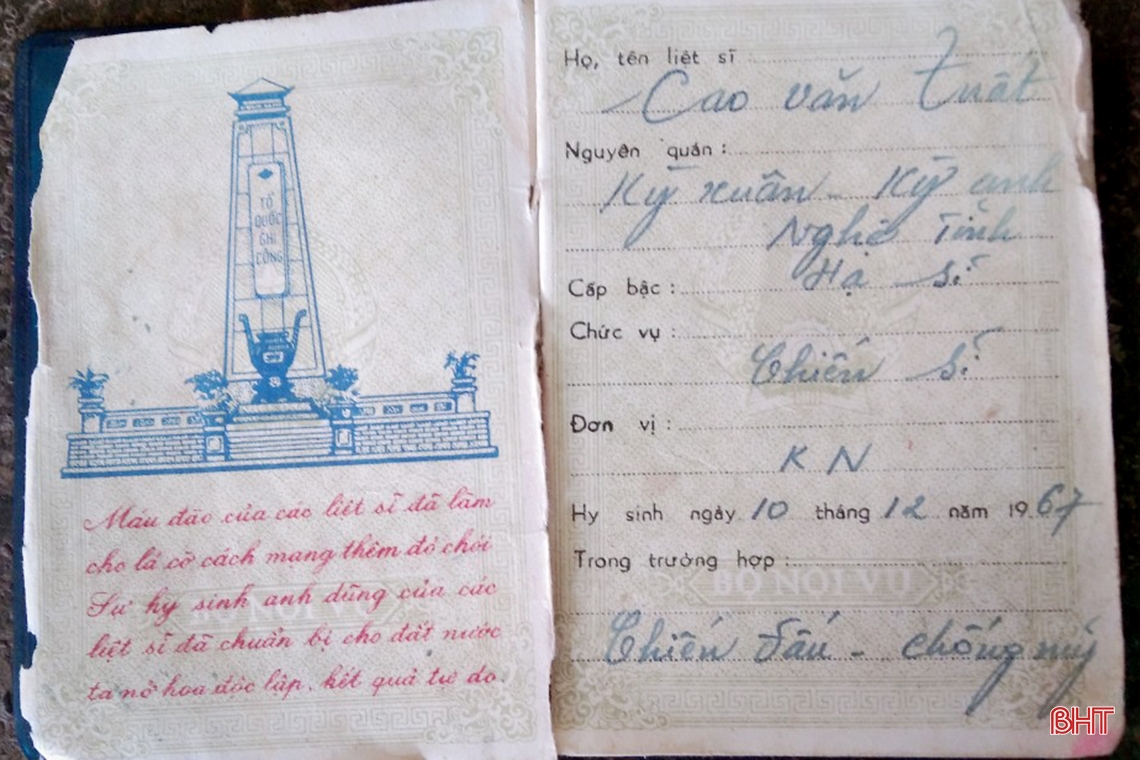 TỔ
QUỐC
GHI
CÔNG
Máu đào của các liệt sĩ đã làm
cho lá cờ cách mạng thêm đỏ chói
Sự hy sinh anh dũng của các
liệt sĩ đã chuẩn bị cho đất nước
ta nở hoa độc lập, kết quả tự do
Họ, tên liệt sĩ
Cao văn Tuất
Nguyên quán:
Kỳ xuân - Kỳ anh
Nghệ Tĩnh
Cấp bậc: Hạ sĩ
Chức vụ:
Chiến sĩ
Đơn vị:
KN
Hy sinh ngày 10 tháng 12 năm 1967
Trong trường hợp:
BỘ NỘI VỤ
Chiến đấu - chống mỹ
BHT